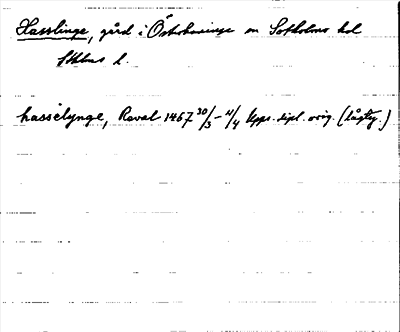 Hasslinge, gård i Österhaninge sn Sotholms hd
Sthlms l.
hasselynge, Raval 1467 30/3 - 4/4 Upps. dipl. orig. (lågty.)